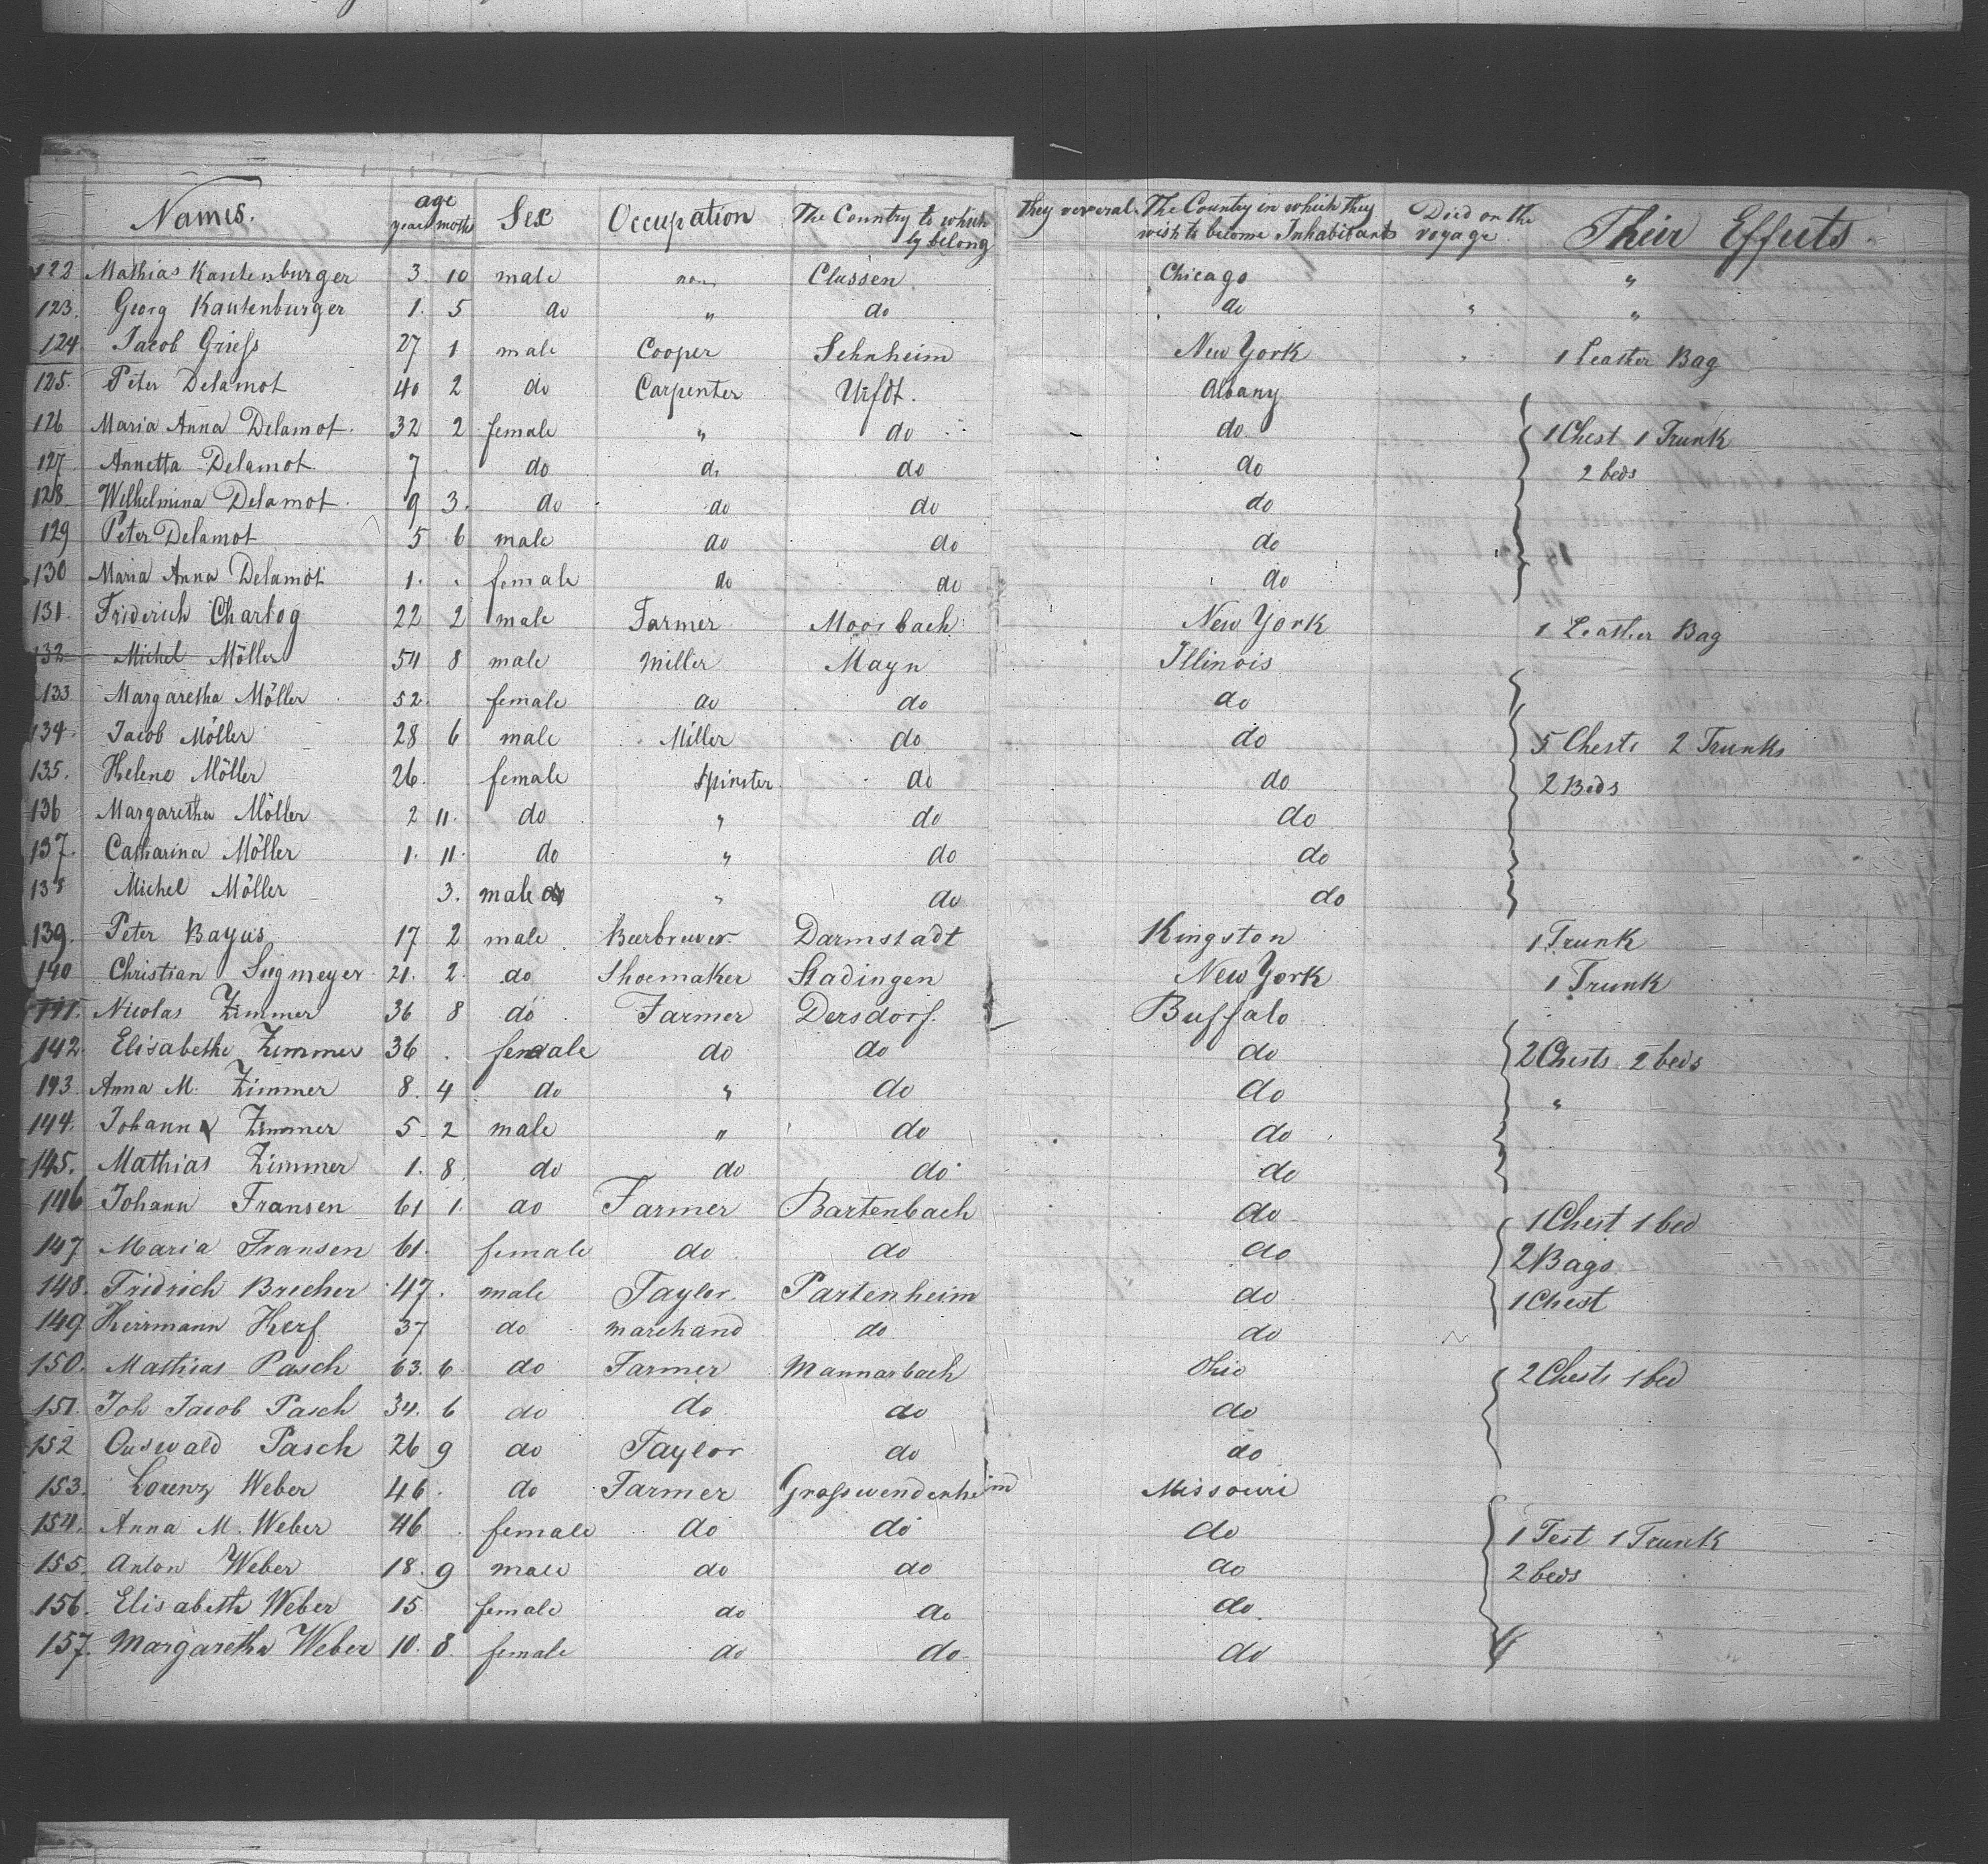 Names. age years months Sex Occupation The Country to which they several- The Country in which they Died on the Their Effects.
ly belong wish to become Inhabitants voyage
122 Mathias Kautenburger 3. 10 male Clussen Chicago "
123. Georg Kautenburger 1. 5 do " do do " "
124 Jacob Griess 27 1 male Cooper Sehnheim New York 1 Leather Bag
125. Peter Delamot 40 2 do Carpenter Urfdt. Albany
126 Maria Anna Delamot. 32 2 female " do do 1 Chest 1 Trunk
127. Annetta Delamot 7 do do do do 2 beds
128. Wilhelmina Delamot. 9 3. do do do do
129 Peter Delamot 5 6 male do do do
130 Maria Anna Delamot 1. . female do do do
131. Friderich Chartog 22 2 male Farmer Moosbach New York 1 Leather Bag
132 Michel Möller 54 8 male Miller Mayn Illinois
133 Margaretha Möller 52. female do do do
134. Jacob Möller 28 6 male Miller do do 5 Chests 2 Trunks
135. Helene Möller 26. female Spinster do do 2 Beds
136 Margaretha Möller 2 11. do " do do
137. Catharina Möller 1. 11. do " do do
138 Michel Möller 3. male " do do
139. Peter Bayus 17 2 male Beerbrewer Darmstadt Kingston 1 Trunk
140 Christian Siegmeyer 21. 2. do Shoemaker Stadingen New York 1 Trunk
141. Nicolas Zimmer 36 8 do Farmer Dersdorf. Buffalo
142. Elisabethe Zimmer 36 . female do do do 2 Chests. 2 beds
143. Anna M. Zimmer 8. 4 do " do do "
144. Johann Zimmer 5. 2 male " do do
145. Mathias Zimmer 1. 8. do do do do
146 Johann Fransen 61 1. do Farmer Bartenbach do 1 Chest 1 bed
147 Maria Fransen 61. female do do do 2 Bags
148. Fridrich Brecher 47. male Taylor. Partenheim do 1 Chest
149. Herrmann Herf 37 do marchand do do
150. Mathias Pasch 63. 6. do Farmer Mannarbach Ohio 2 Chests 1 bed
151. Joh Jacob Pasch 34. 6 do do do do
152 Ouswald Pasch 26 9 do Taylor do do
153. Lorenz Weber 46. do Farmer Grosswendenheim Missouri
154. Anna M. Weber 46 . female do do do 1 Test 1 Trunk
155. Anton Weber 18. 9 male do do do 2 beds
156. Elisabeth Weber 15. female do do do
157. Margaretha Weber 10. 8. female do do do